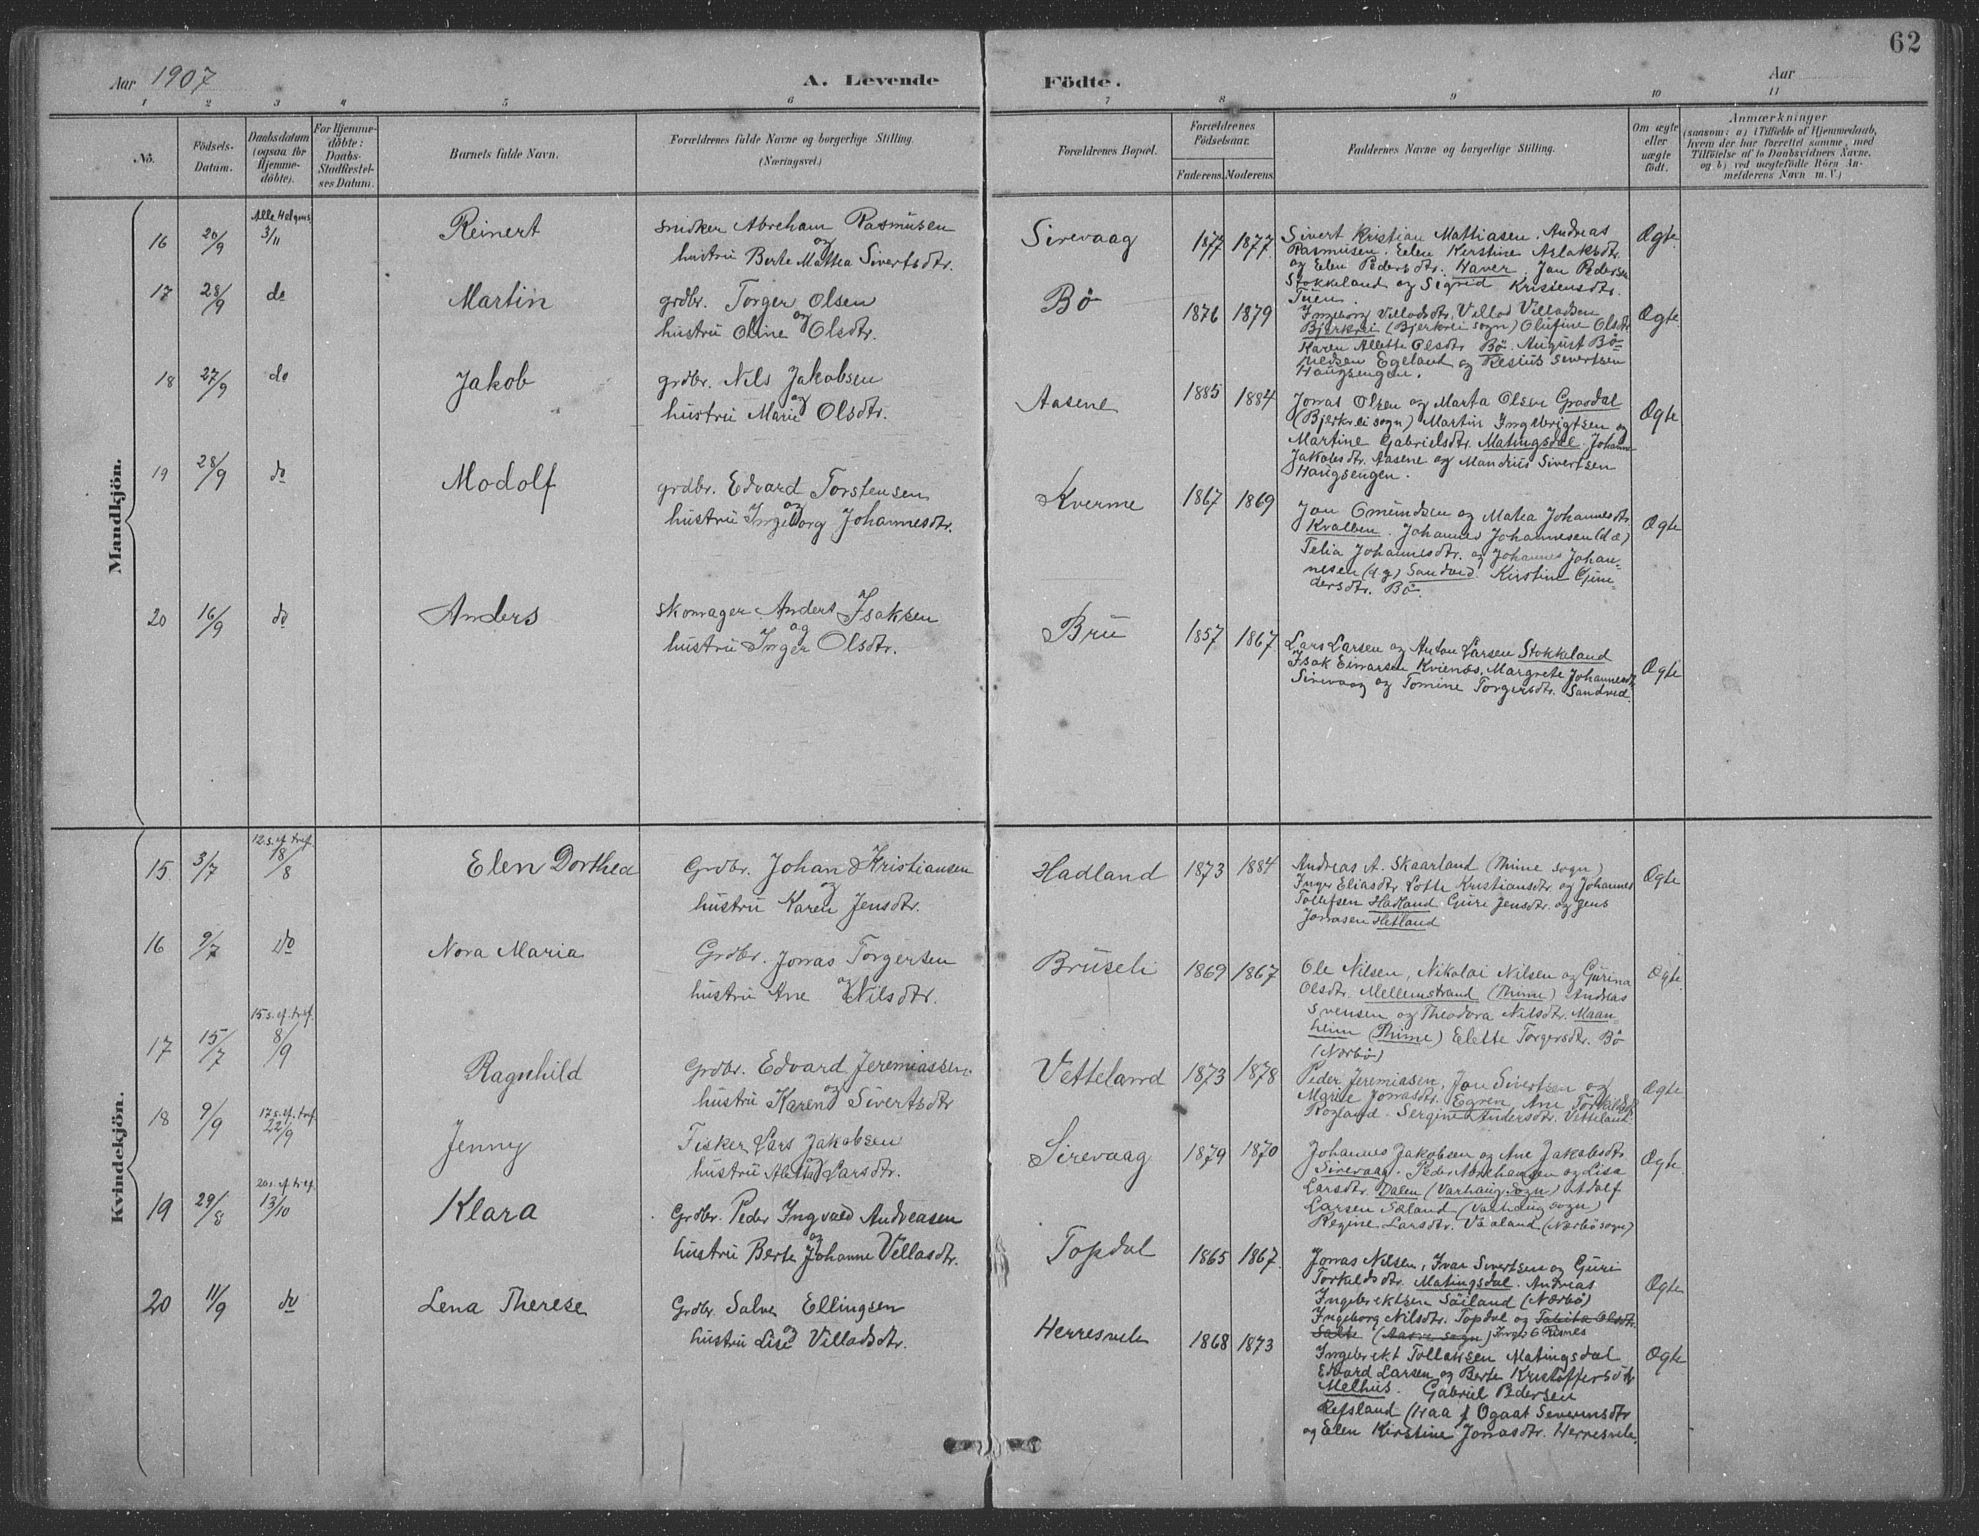 62
Aar 1907
A. Levende Födte.
Aar
1 2 3 4 5 6 7 8 9 10 11
No.
Födsels-Datum.
Daabsdatum (ogsaa for Hjemme-döbte).
For Hjemme-döbte: Daabs-Stadfæstel-ses Datum.
Barnets fulde Navn.
Forældrenes fulde Navne og borgerlige Stilling.
(Næringsvei.)
Forældrenes Bopæl.
Forældrenes Födselsaar.
Faderens. Moderens.
Faddernes Navne og borgerlige Stilling.
Om ægte eller uægte födt.
Anmærkninger
(saasom: a) i Tilfælde af Hjemmedaab,
hvem der har forrettet samme, med
Tilföielse af to Daabsvidners Navne,
og b) ved uægtefödte Börn An-
melderens Navn m. V.)
Mandkjön.
16 20/9 Alle Helgens 3/11 Reinert
snidker Abreham Rasmusen
og
hustru Berte Mathea Sivertsdtr.
Sirevaag 1877 1877
Sivert Kristian Mathiasen. Andreas
Rasmusen. Elen Kirstine Aslaksdtr.
og Elen Pedersdtr. Haver. Jan Pedersen
Stokkeland og Sigrid Kristensdtr.
Tuen.
Ægte
17 28/9 do Martin
grdbr. Torger Olsen
og
hustru Oline Olsdtr.
Bö 1876 1879
Ingeborg Villadsdtr. Villad Villadsen
Bjerkrei (Bjerkrei sogn) Olufine Olsdtr
Karen Alette Olsdtr Bö. August Bö-
nedsen Egeland og Resius Sivertsen
Haugsengen.
Ægte
18 27/9 do Jakob
grdbr. Nils Jakobsen
og
hustru Marie Olsdtr.
Aasene 1885 1884
Jonas Olsen og Marta Olsen Grasdal
(Bjerkrei sogn) Martin Ingebrigtsen og
Martine Gabrielsdtr. Matingsdal. Johanne
Jakobsdtr. Aasene og Mandius Sivertsen
Haugsengen.
Ægte
19 28/9 do Modolf
grdbr. Edvard Torstensen
og
hustru Ingeborg Johannesdtr.
Kverme 1867 1869
Jon Omundsen og Matea Johannesdtr
Kvalben. Johannes Johannesen (d.æ)
Telia Johannesdtr. og Johannes Johan-
nesen (d.y) Sandved. Kirstine Gun-
dersdtr. Bö.
Ægte
20 16/9 do Anders
skomager Anders Isaksen
og
hustru Inger Olsdtr.
Bru 1857 1867
Lars Larsen og Anton Larsen Stokkeland
Isak Einarsen Kvienes. Margrete Johannesdtr
Sirevaag og Tomine Torgersdtr. Sandved.
Ægte
Kvindekjön.
15 3/7 12.s.ef.tref. 18/8 Elen Dorthea
Grdbr. Johan Kristiansen
og
hustru Karen Jensdtr.
Hadland 1873 1884
Andreas A. Skaarland (Thime sogn)
Inger Eliasdtr Lotte Kristiansdtr. og Johannes
Tollefsen Hadland Guri Jensdtr. og Jens
Jonasen Hetland
Ægte
16 9/7 do Nora Maria
Grdbr. Jonas Torgersen
og
hustru Ane Nilsdtr.
Bruseli 1869 1867
Ole Nilsen, Nikolai Nilsen og Gurina
Olsdtr. Mellemstrand (Thime) Andreas
Svensen og Theodora Nilsdtr. Maan-
heim (Thime) Elette Torgersdtr. Bö
(Nærbö)
Ægte
17 15/7 15.s.ef.tref. 8/9 Ragnhild
Grdbr. Edvard Jeremiassen
og
hustru Karen Sivertsdtr
Vetteland 1873 1878
Peder Jeremiasen, Jon Sivertsen og
Marie Jonasdtr. Egren, Ane Torkildsdtr
Rogland. Sergine Andersdtr. Vetteland
Ægte
18 9/9 17.s.ef.tref. 22/9 Jenny
Fisker Lars Jakobsen
og
hustru Aletta Larsdtr.
Sirevaag 1879 1870
Johannes Jakobsen og Ane Jakobsdtr
Sirevaag. Peder Abrehamsen og Lisa
Larsdtr. Dalen (Varhaug sogn) Adolf
Larsen Sæland (Varhaug sogn)
Regine Larsdtr. Vaaland (Nærbö sogn)
Ægte
19 29/8 20s.ef.tref. 13/10 Klara
Grdbr. Peder Ingvald Andreasen
og
hustru Berte Johanne Villasdtr.
Topdal 1865 1867
Jonas Nilsen, Ivar Sivertsen og Guri
Torkeldsdtr. Matingsdal. Andreas
Ingebrektsen Söiland (Nærbö)
Ingeborg Nilsdtr. Topdal og Tabita Olsdtr.
Salte (Aasve sogn)
Ægte
20 11/9 do Lena Therese
Grdbr. Salve Ellingsen
og
hustru Lise Villadsdtr.
Herresvele 1868 1873
Ingebrekt Tollaksen Matingsdal
Edvard Larsen og Berte Kristoffersdtr
Melhus. Gabriel Pedersen
Refsland (Haa) Ogaat Severinsdtr
og Elen Kirstine Jonasdtr. Herresvele.
Ægte